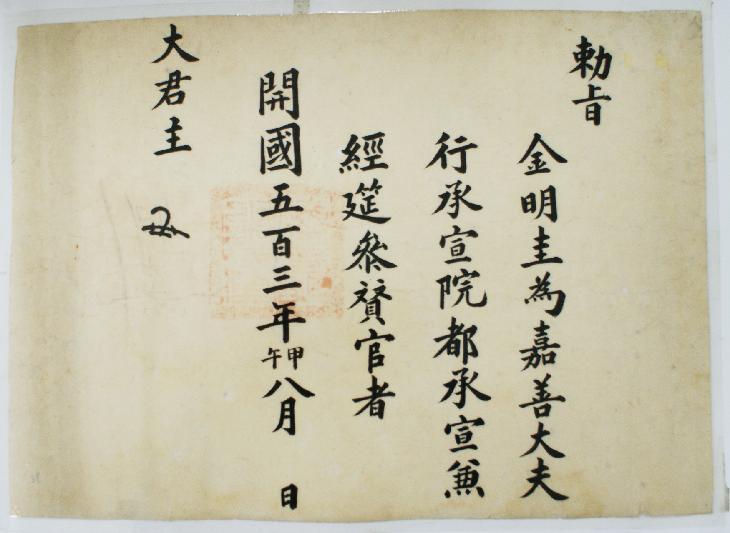 勅旨
金明圭為嘉善大夫
行承宣院都承宣兼
經筵參賛官者
開國五百三年甲午八月 日
大君主